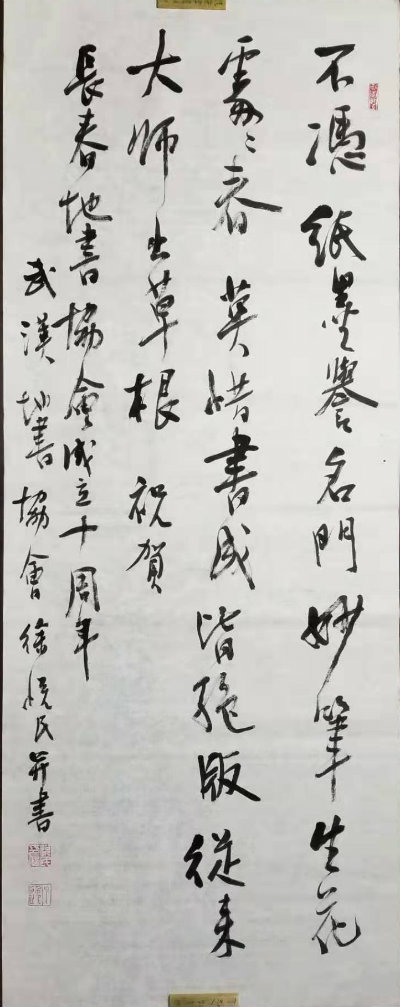 不憑紙墨譽名門妙筆生花
處々春莫惜書成皆絕版從来
大师出草根祝賀
長春地書協會成立十周年
武漢地書協會徐民并書